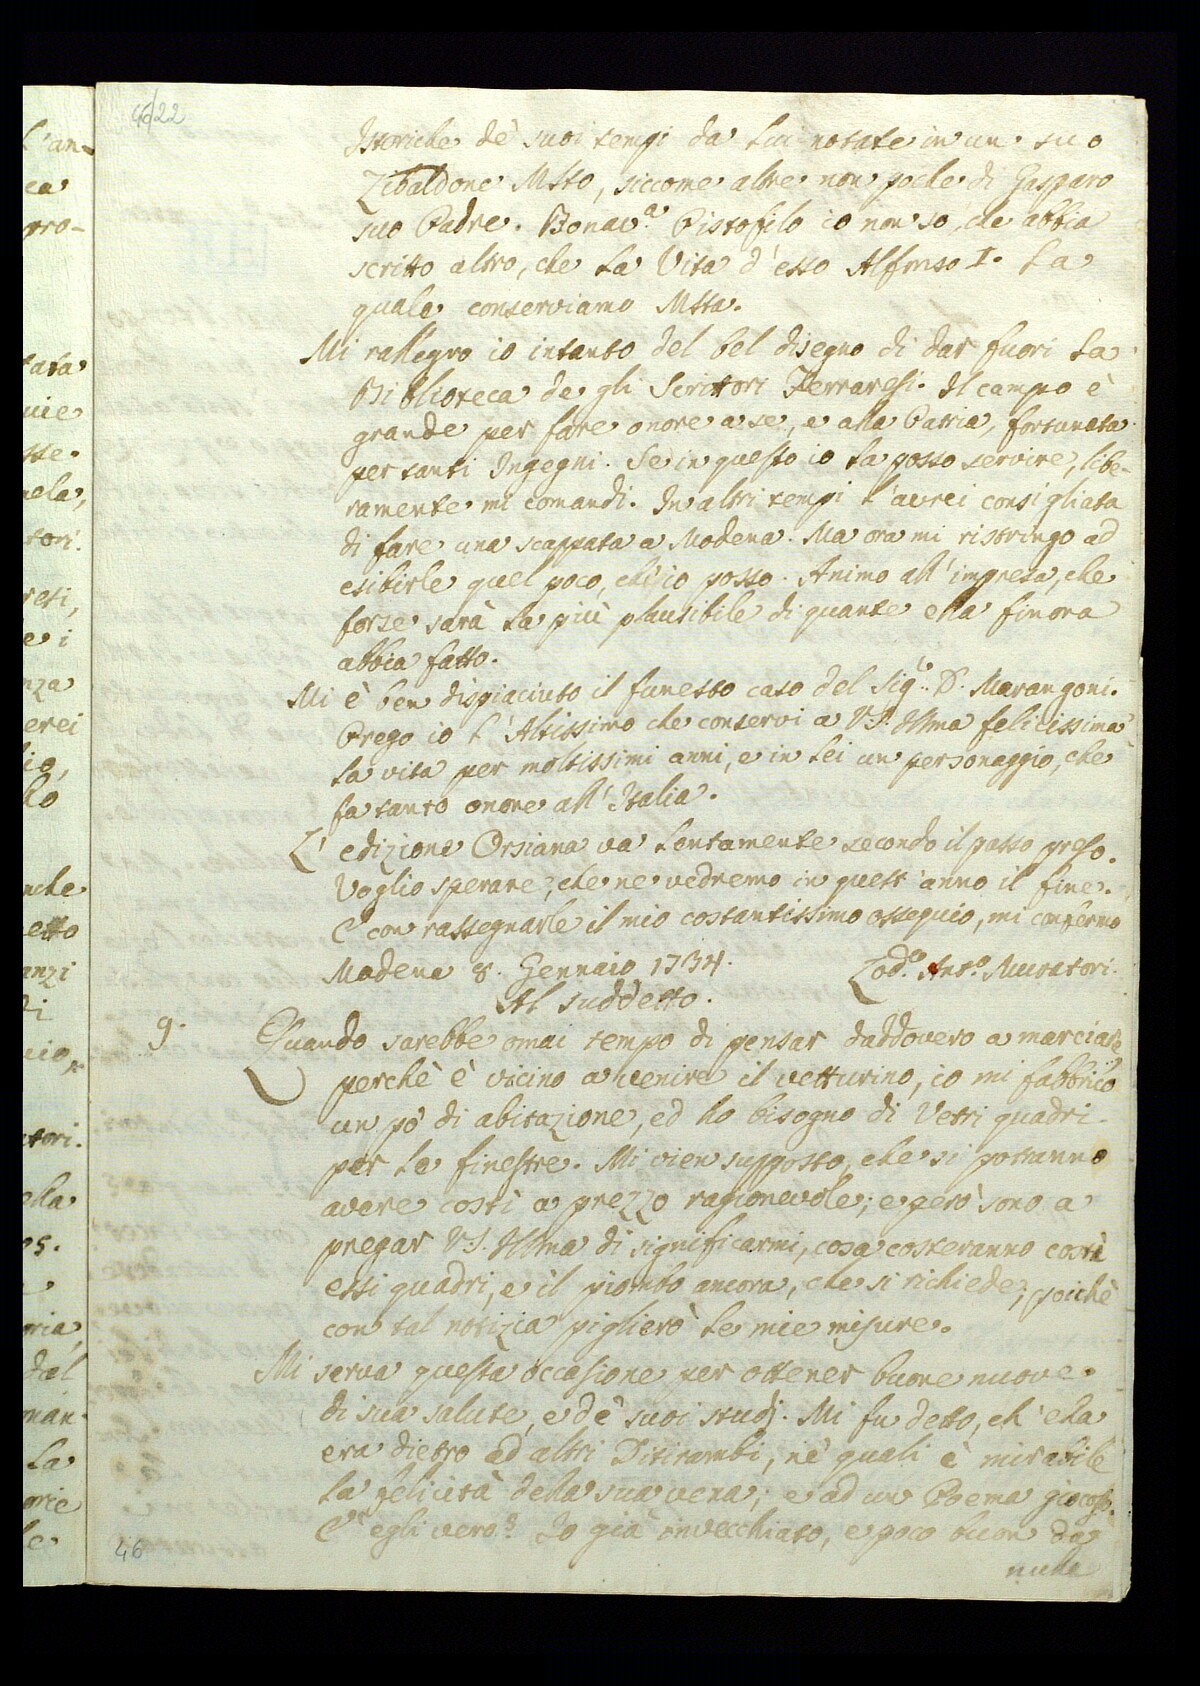 46/22
Istoriche de' suoi tempi da lui notate in un suo
Zibaldone Msto, siccome altre non poche di Gasparo
suo Padre. Bonav.a Pistofilo io non so, che abbia
scritto altro, che la Vita d'esso Alfonso I. la
quale conserviamo Msta.
Mi rallegro io intanto del bel disegno di dar fuori la
Biblioteca de gli Scrittori Ferraresi. Il campo è
grande per fare onore a se, e alla Patria, fortunata
per tanti Ingegni. Se in questo io la posso servire, libe-
ramente mi comandi. In altri tempi l'avrei consigliata
di fare una scappata a Modena. Ma ora mi ristringo ad
esibirle quel poco, ch'io posso. Animo all'impresa, che
forse sarà la più plausibile di quante ella finora
abbia fatto.
Mi è ben dispiaciuto il funesto caso del Sig.r D. Marangoni.
Prego io l'Altissimo che conservi a V.S. Illma felicissima
la vita per moltissimi anni, e in lei un personaggio, che
fa tanto onore all'Italia.
L'edizione Orsiana va lentamente secondo il passo preso.
Voglio sperare, che ne vedremo in quest'anno il fine.
E con rassegnarle il mio costantissimo ossequio, mi confermo
Modena 8. Gennaio 1734. Lod.o Ant.o Muratori.
Al suddetto.
9. Quando sarebbe omai tempo di pensar daddovero a marciare
perchè è vicino a venire il vetturino, io mi fabbrico
un pò di abitazione, ed ho bisogno di Vetri quadri
per le finestre. Mi vien supposto, che si potranno
avere costì a prezzo ragionevole; e però sono a
pregar V.S. Illma di significarmi, cosa costeranno costì
essi quadri, e il piombo ancora, che si richiede; poichè
con tal notizia piglierò le mie misure.
Mi serva questa occasione per ottener buone nuove
di sua salute, e de' suoi studj. Mi fu detto, ch'ella
era dietro ad altri Ditirambi, nè quali è mirabile
la felicità della sua vena; e ad un Poema giocoso.
E' egli vero? Io già invecchiato, e poco buon da
nulla
46